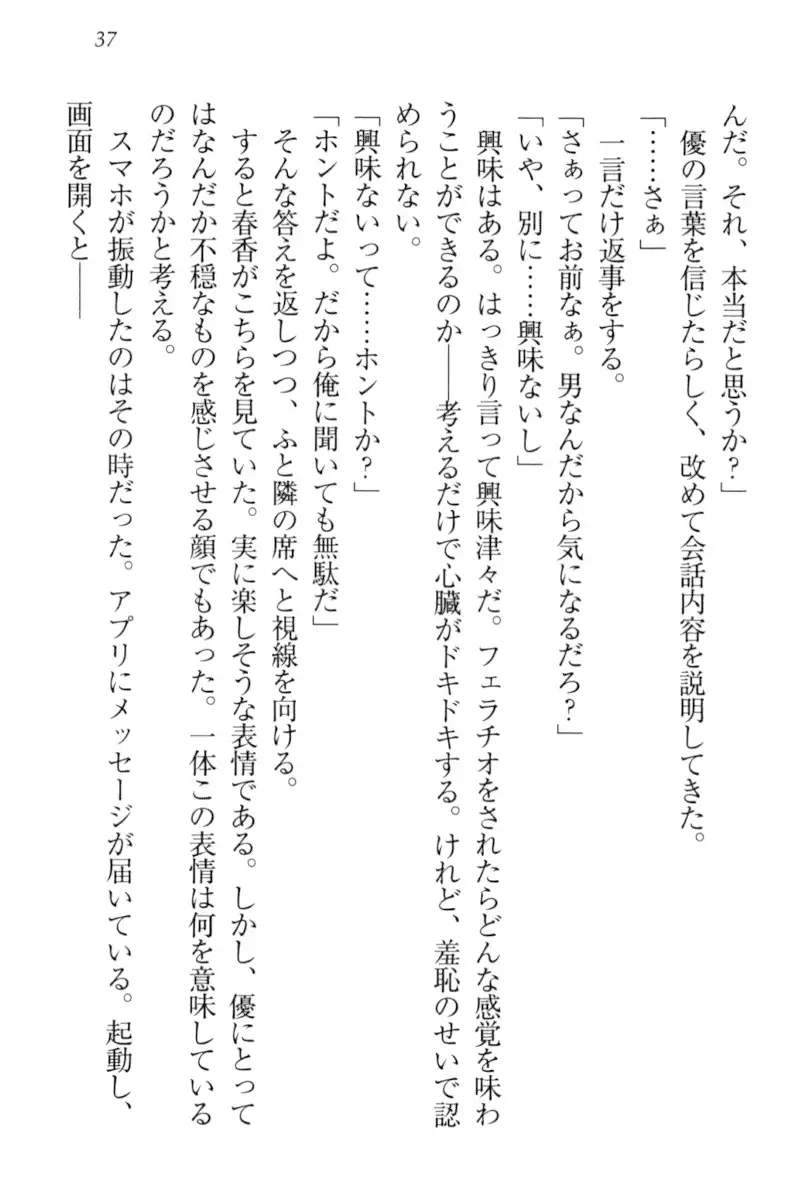 37
んだ。それ、本当だと思うか？」
優の言葉を信じたらしく、改めて会話内容を説明してきた。
「……さぁ」
一言だけ返事をする。
「さぁってお前なぁ。男なんだから気になるだろ？」
「いや、別に……興味ないし」
興味はある。はっきり言って興味津々だ。フェラチオをされたらどんな感覚を味わ
うことができるのか――考えるだけで心臓がドキドキする。けれど、羞恥のせいで認
められない。
「興味ないって……ホントか？」
「ホントだよ。だから俺に聞いても無駄だ」
そんな答えを返しつつ、ふと隣の席へと視線を向ける。
すると春香がこちらを見ていた。実に楽しそうな表情である。しかし、優にとって
はなんだか不穏なものを感じさせる顔でもあった。一体この表情は何を意味している
のだろうかと考える。
スマホが振動したのはその時だった。アプリにメッセージが届いている。起動し、
画面を開くと――